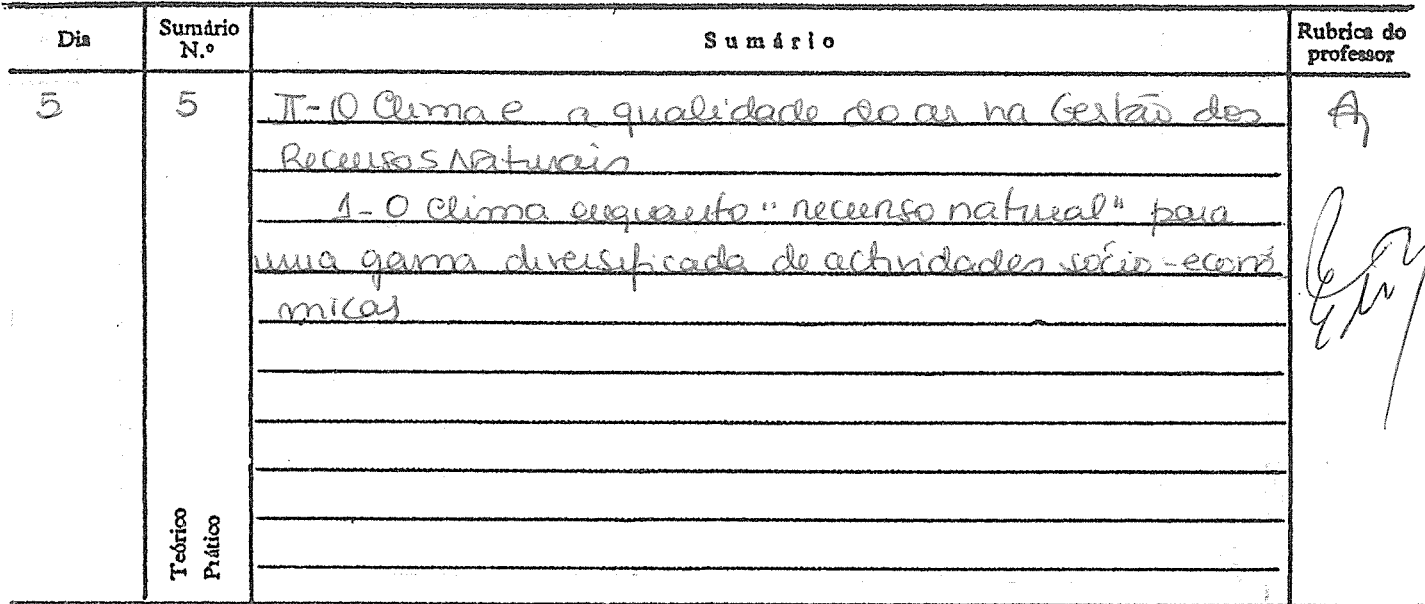 Dia
Sumário N.º
Sumário
Rubrica do professor
5
5
II - O Clima e a qualidade do ar na Gestão dos
Recursos Naturais
1 - O Clima enquanto "recurso natural" para
uma gama diversificada de actividades sócio-econó
micas
Teórico
Prático